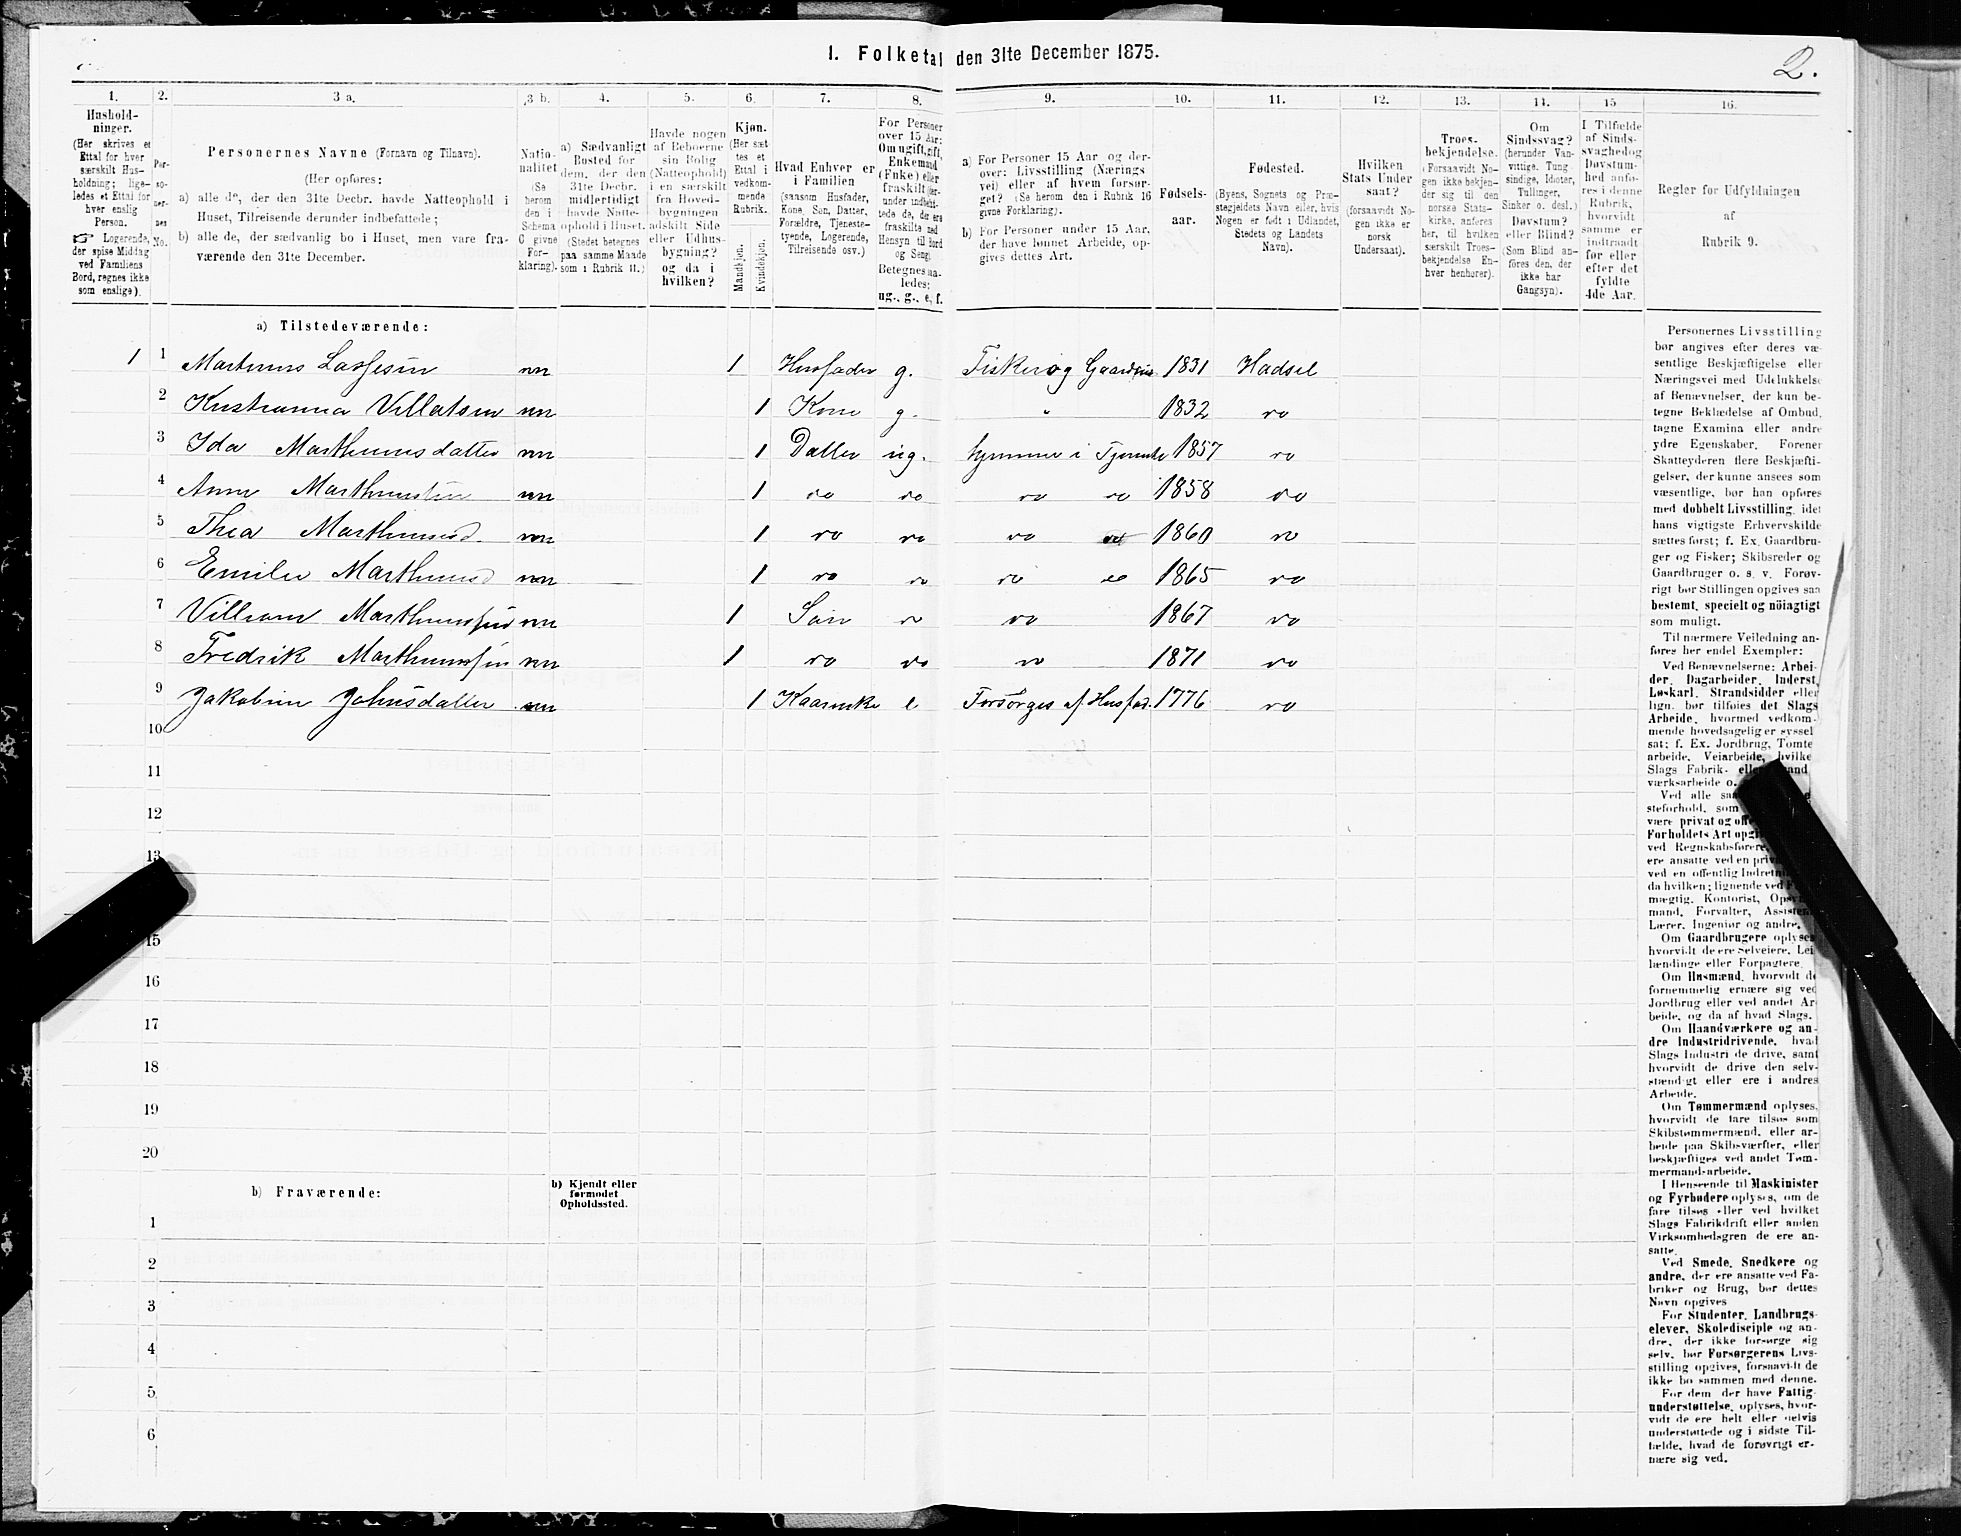 1. Folketal den 31te December 1875.
2.
1.
Hushold-
ninger.
(Her skrives et
Ettal for hver
særskilt Hus-
holdning; lige-
ledes et Ettal for
hver enslig
Person.
☞ Logerende,
der spise Middag
ved Familiens
Bord, regnes ikke
som enslige).
2.
Per-
so-
ner-
nes
No.
3 a.
Personernes Navne (Fornavn og Tilnavn).
(Her opføres:
a) alle de, der den 31te Decbr. havde Natteophold i
Huset, Tilreisende derunder indbefattede;
b) alle de, der sædvanlig bo i Huset, men vare fra-
værende den 31te December.
3 b.
Natio-
nalitet
(Se
herom
den i
Schema
C givne
For-
klaring).
4.
a) Sædvanligt
Bosted for
dem, der den
31te Decbr.
midlertidigt
havde Natte-
ophold i Huset.
(Stedet betegnes
paa samme Maade
som i Rubrik 11.)
5.
Havde nogen
af Beboerne
sin Bolig
(Natteophold)
i en særskilt
fra Hoved-
bygningen
adskilt Side
eller Udhus-
bygning?
og da i
hvilken?
6.
Kjøn.
(Her sæt
tes et
Ettal i
vedkom-
mende
Rubrik.
Mandkjøn.
Kvindekjøn.
7.
Hvad Enhver er
i Familien
(saasom Husfader,
Kone, Søn, Datter,
Forældre, Tjeneste-
tyende, Logerende,
Tilreisende osv.)
8.
For Personer
over 15 Aar:
Om ugift, gift,
Enkemand
(Enke) eller
fraskilt (her-
under indbefat-
tede de, der ere
fraskilte med
Hensyn til Bord
og Seng)
Betegnes saa-
ledes:
ug., g., e, f.
9.
a) For Personer 15 Aar og der-
over: Livsstilling (Nærings
vei) eller af hvem forsør-
get? (Se herom den i Rubrik 16
givne Forklaring).
b) For Personer under 15 Aar,
der have lønnet Arbeide, op-
gives dettes Art.
10.
Fødsels-
aar.
11.
Fødested.
(Byens, Sognets og Præ-
stegjeldets Navn eller, hvis
Nogen er født i Udlandet,
Stedets og Landets
Navn).
12.
Hvilken
Stats Under
saat?
(forsaavidt No-
gen ikke er
norsk
Undersaat).
13.
Troes-
bekjendelse.
(Forsaavidt No-
gen ikke bekjen-
der sig til den
norske Stats-
kirke, anføres
her, til hvilken
særskilt Troes-
bekjendelse En-
hver henhører).
14.
Om
Sindssvag?
(herunder Van-
vittige, Tung
sindige, Idioter,
Tullinger,
Sinker o. desl.)
Døvstum?
eller Blind?
(Som Blind an-
føres den, der
ikke har
Gangsyn).
15
I Tilfælde
af Sinds-
svaghed og
Døvstum-
hed anfø-
res i denne
Rubrik,
hvorvidt
samme er
indtraadt
før eller
efter det
fyldte
4de Aar.
16.
Regler for Udfyldningen
af
Rubrik 9.
a) Tilstedeværende:
1 1 Martinus Lassesen nn 1 Husfader g. Fisker og 1831 Hadsel
2 nn 1 Kone g. " 1832 do
3 Ida Marthinusdatter nn 1 Datter ug. 1857 do
4 Anne nn 1 do do do do 1858 do
5 Thea Marthinusd. nn 1 do do do 1860 do
6 Marthinusd nn 1 do do do do 1865 do
7 Marthinussen nn 1 Søn do do 1867 do
8 Fredrik Marthinussen nn 1 do do do 1871 do
9 Jakobine Johnsdatter nn 1 e Forsørges af Husfad. 1776 do
10
11
12
13
15
16
17
18
19
20
b) Fraværende:
b) Kjendt eller
formodet
Opholdssted.
1
2
3
4
5
6
Personernes Livsstilling
bør angives efter deres væ-
sentlige Beskjæftigelse eller
Næringsvei med Udelukkelse
af Benævnelser, der kun be-
tegne Beklædelse af Ombud,
tagne Examina eller andre
ydre Egenskaber. Forener
Skatteyderen flere Beskjæfti-
gelser, der kunne ansees som
væsentlige, bør han opføres
med dobbelt Livsstilling, idet
hans vigtigste Erhvervskilde
sættes først; f. Ex. Gaardbru-
ger og Fisker; Skibsreder og
Gaardbruger o. s. v. Forøv-
rigt bør Stillingen opgives saa
bestemt, specielt og nöiagtigt
som muligt.
Til nærmere Veiledning an-
føres her endel Exempler:
Ved Benævnelserne: Arbei-
der, Dagarbeider, Inderst,
Løskarl, Strandsidder eller
lign. bør tilføies det Slags
Arbeide, hvormed vedkom-
mende hovedsagelig er syssel
sat; f. Ex. Jordbrug, Tomte
arbeide, Veiarbeide, hvilke
Slags Fabrik- eller
værksarbeide o.
Ved alle
steforhold, som
være privat og
Forholdets Art
ved Regnskabsførere,
ere ansatte ved en
ved en offentlig
da hvilken; lignende ved
mægtig, Kontorist,
mand, Forvalter,
Lærer, Ingeniør og andre.
Om Gaardbrugere oplyses,
hvorvidt de ere Selveiere, Lei
lændinge eller Forpagtere.
Om Husmænd, hvorvidt de
fornemmelig ernære sig ved
Jordbrug eller ved andet Ar
beide, og da af hvad Slags.
Om Haandværkere og an-
dre Industridrivende, hvad
Slags Industri de drive, samt
hvorvidt de drive den selv-
stændigt eller ere i andres
Arbeide.
Om Tømmermænd oplyses,
hvorvidt de fare tilsøs som
Skibstømmermænd, eller ar-
beide paa Skibsværfter, eller
beskjæftiges ved andet Tøm-
mermand-arbeide.
I Henseende til Maskinister
og Fyrbødere oplyses, om de
fare tilsøs eller ved hvilket
Slags Fabrikdrift eller anden
Virksomhedsgren de ere an-
satte.
Ved Smede, Snedkere og
andre, der ere ansatte ved Fa-
briker og Brug, bør dettes
Navn opgives
For Studenter, Landbrugs-
elever, Skoledisciple og an-
dre, der ikke forsørge sig
selv, bør Forsørgerens Livs-
stilling opgives, forsaavidt de
ikke bo sammen med denne.
For dem der have Fattig-
understøttelse, oplyses, hvor-
vidt de ere helt eller delvis
understøttede og i sidste Til-
fælde, hvad de forøvrigt er-
nære sig ved.